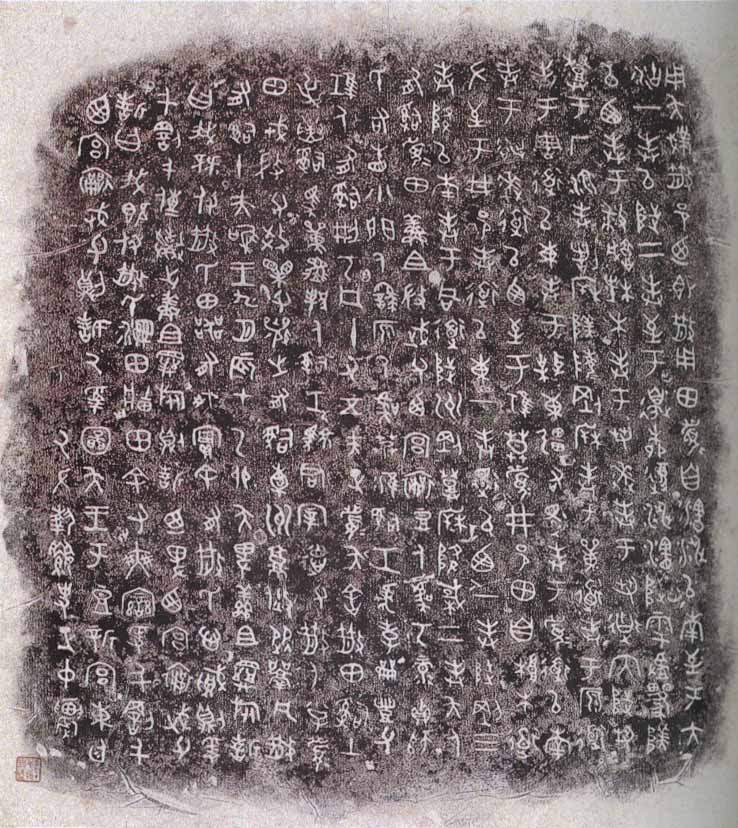 用夨𢦏散邑乃即散用田眉自瀗涉以南至于大
沽一封以陟二封至于邊柳復涉瀗陟雩𠭯𨙻𨻰
以西封于播城楮木封于芻逨封于芻道内陟芻
登于厂湶封諸𣂪陵陵剛𣂪封于單道封于原道
封于周道以東封于𣎆東疆右還封于眉道以南
封于𥻀逨道以西至于𣻗莫眉井邑田自根木道
左至于井邑封道以東一封還以西一封陟剛三
封降以南封于同道陟州剛登𣂪降棫二封夨人
有𤔲眉田鮮且微武父西宮襄豆人虞丂彔貞師
氏右眚小門人繇原人虞艿淮𤔲工虎孝𠕋豐父
𣻗人有𤔲刑丂凡十又五夫正眉夨舍散田𤔲土
屰寅𤔲馬單𨛭人𤔲工黥君宰德父散人小子眉
田戎微父效𣪘父襄之有𤔲橐州京攸從𩰫凡散
有𤔲十夫唯王九月辰才乙卯夨卑鮮且𢍰旅誓
曰我既付散氏田器有爽實余有散氏心賊則爰
千罰千傳棄之鮮且𢍰旅則誓廼卑西宮襄武父
誓曰我既付散氏溼田牆田余又爽䜌爰千罰千
西宮襄武父則誓氒受圖夨王于豆新宮東廷
氒左執繇史正中農